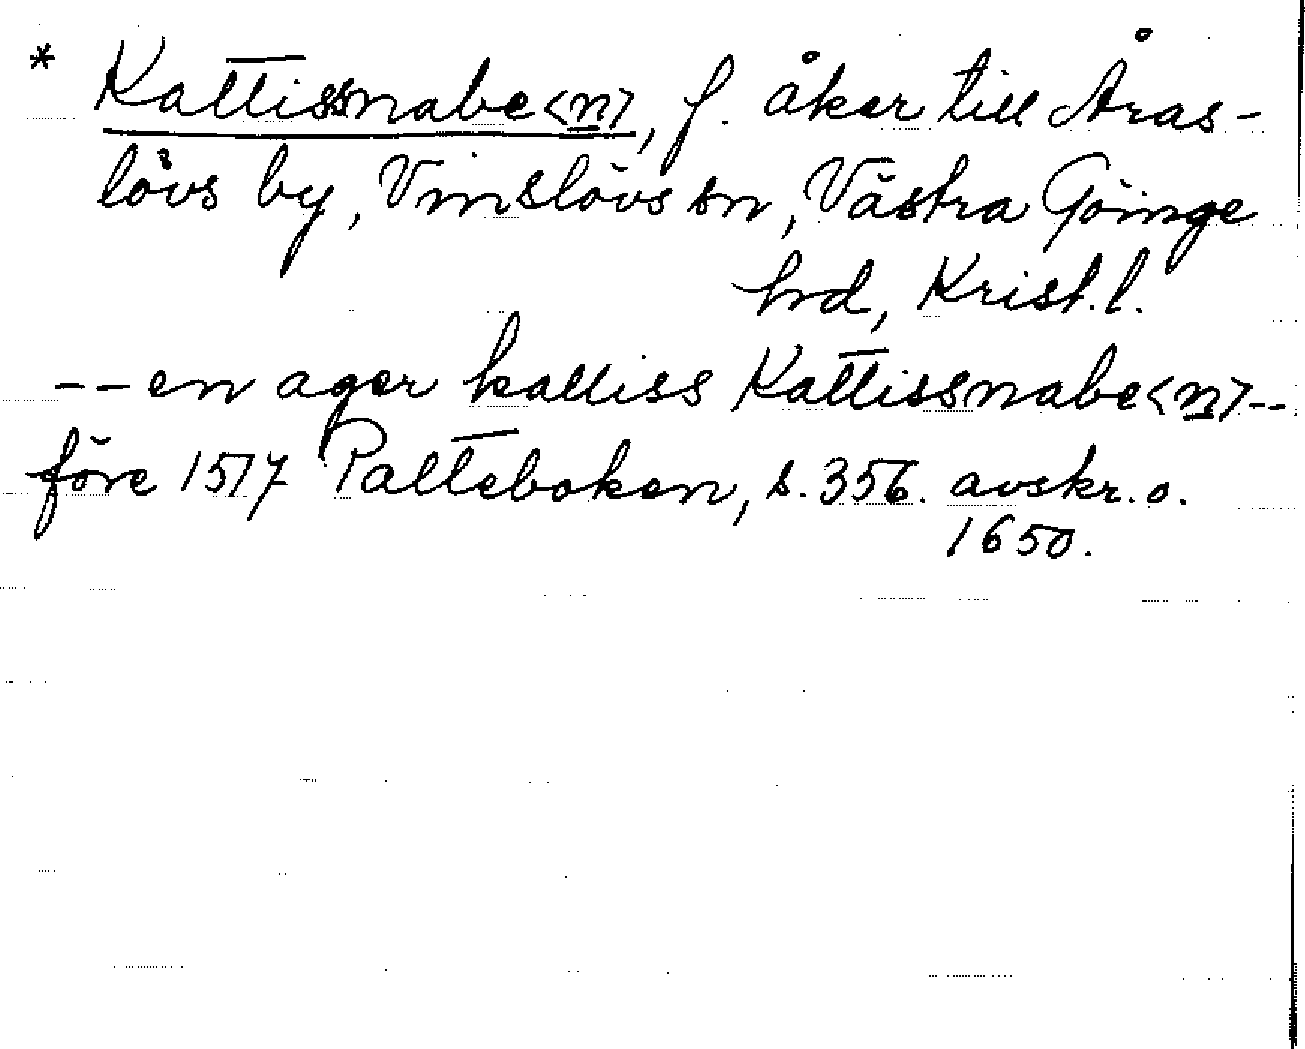 * Kattissnabe<n>, f. åker till Åras-
lövs by, Vinslövs sn, Västra Göinge
hrd, Krist. l.
-- en ager kalliss Kattissnabe<n> --
före 1517 Palteboken, s. 356. avskr. o.
1650.